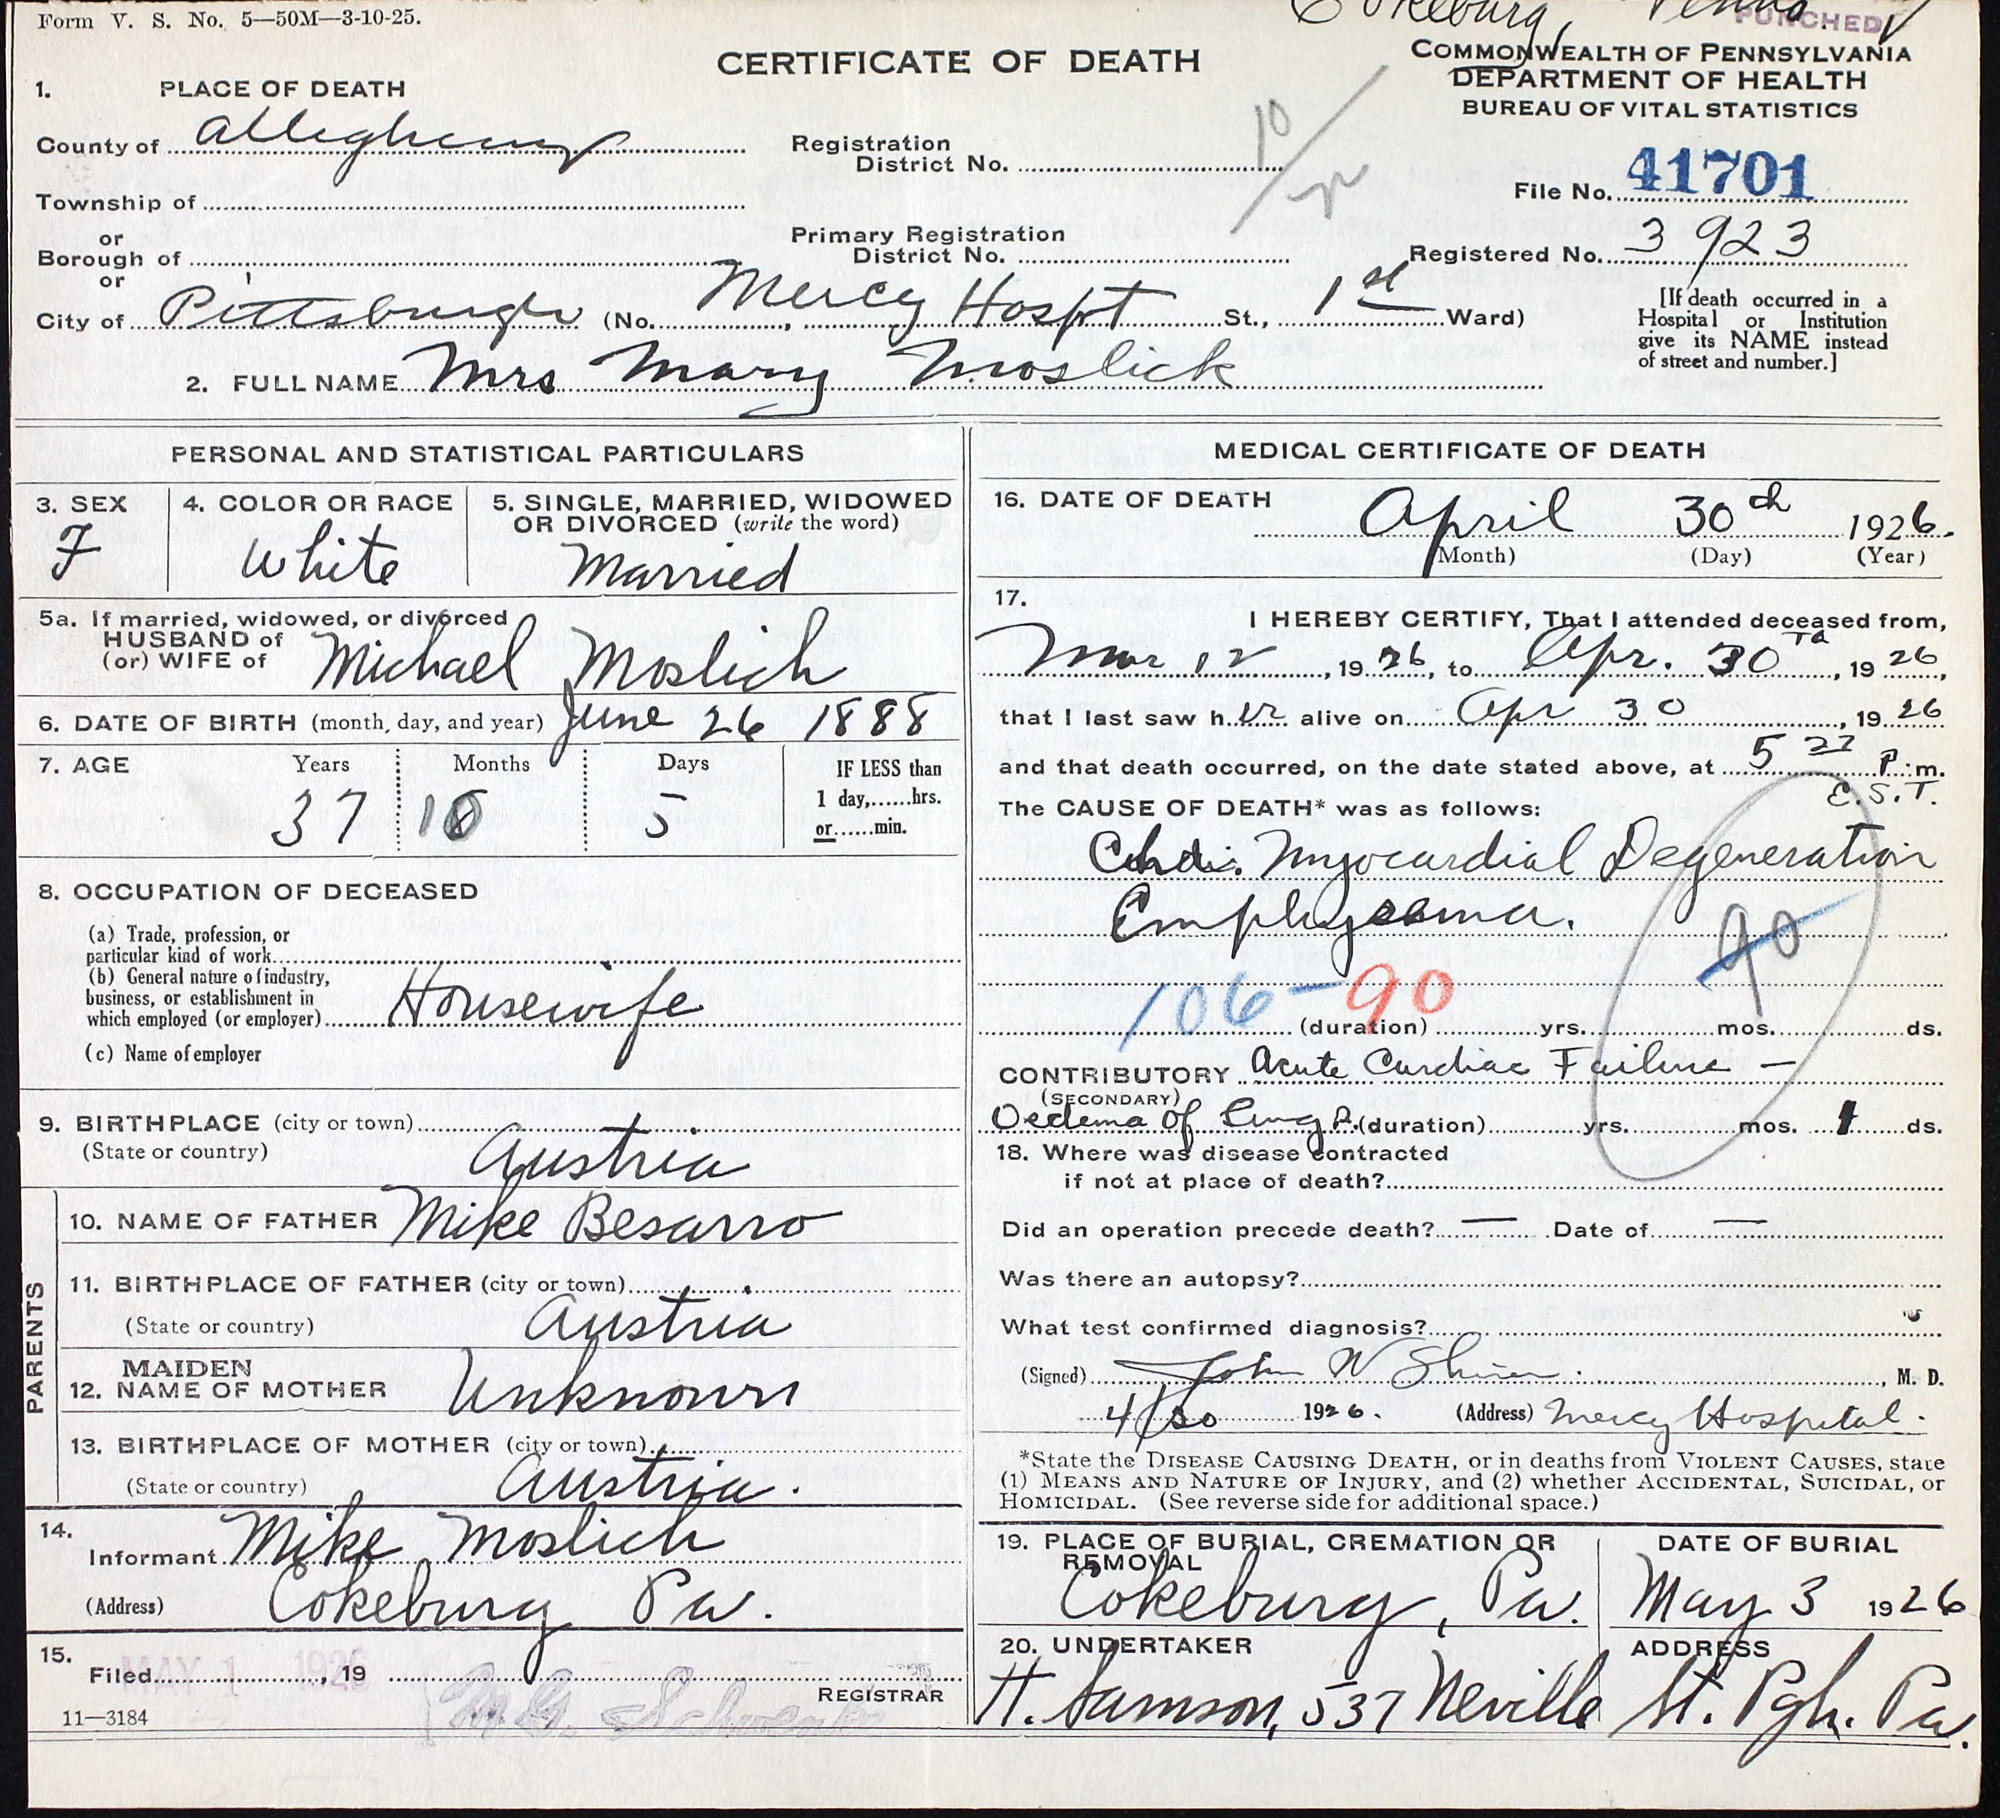 Form V. S. No. 5—50M—3-10-25.
Cokeburg, Penna.
PUNCHED
CERTIFICATE OF DEATH
COMMONWEALTH OF PENNSYLVANIA
DEPARTMENT OF HEALTH
BUREAU OF VITAL STATISTICS
1. PLACE OF DEATH
County of Allegheny
Registration
District No.
10
File No. 41701
Township of
or
Primary Registration
District No.
Registered No. 3923
Borough of
or
City of Pittsburgh (No. Mercy Hospt St., 1st Ward)
[If death occurred in a
Hospital or Institution
give its NAME instead
of street and number.]
2. FULL NAME Mrs Mary Moslick
PERSONAL AND STATISTICAL PARTICULARS
3. SEX
F
4. COLOR OR RACE
White
5. SINGLE, MARRIED, WIDOWED
OR DIVORCED (write the word)
Married
5a. If married, widowed, or divorced
HUSBAND of
(or) WIFE of Michael Moslich
6. DATE OF BIRTH (month, day, and year) June 26 1888
7. AGE Years Months Days
37 10 5
IF LESS than
1 day,......hrs.
or......min.
8. OCCUPATION OF DECEASED
(a) Trade, profession, or
particular kind of work
(b) General nature of industry,
business, or establishment in
which employed (or employer) Housewife
(c) Name of employer
9. BIRTHPLACE (city or town)
(State or country) Austria
PARENTS
10. NAME OF FATHER Mike Besarro
11. BIRTHPLACE OF FATHER (city or town)
(State or country) Austria
MAIDEN
12. NAME OF MOTHER Unknown
13. BIRTHPLACE OF MOTHER (city or town)
(State or country) Austria.
14.
Informant Mike Moslich
(Address) Cokeburg Pa.
15.
Filed MAY 1 1926, 19
REGISTRAR
11—3184
MEDICAL CERTIFICATE OF DEATH
16. DATE OF DEATH April 30th 1926.
(Month) (Day) (Year)
17.
I HEREBY CERTIFY, That I attended deceased from,
Mar 12, 1926, to Apr. 30th, 1926,
that I last saw her alive on Apr 30, 1926
and that death occurred, on the date stated above, at 5 27 P. m.
E.S.T.
The CAUSE OF DEATH* was as follows:
Myocardial Degeneration
Emphysema.
90
106-90
(duration) yrs. mos. ds.
CONTRIBUTORY Acute Cardiac Failure —
(SECONDARY)
Oedema of Lungs. (duration) yrs. mos. 1 ds.
18. Where was disease contracted
if not at place of death?
Did an operation precede death? — Date of —
Was there an autopsy?
What test confirmed diagnosis?
(Signed) John W Shirer, M. D.
4/30 1926. (Address) Mercy Hospital.
*State the DISEASE CAUSING DEATH, or in deaths from VIOLENT CAUSES, state
(1) MEANS AND NATURE OF INJURY, and (2) whether ACCIDENTAL, SUICIDAL, or
HOMICIDAL. (See reverse side for additional space.)
19. PLACE OF BURIAL, CREMATION OR
REMOVAL
Cokeburg, Pa.
DATE OF BURIAL
May 3 1926
20. UNDERTAKER
ADDRESS
H. Samson, 537 Neville St. Pgh. Pa.